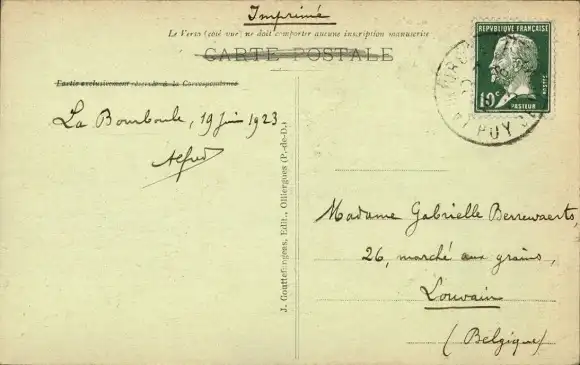 Imprimé
Le Verso (côté vue) ne doit comporter aucune inscription manuscrite
CARTE POSTALE
Partie exclusivement réservée à la Correspondance
La Bourboule, 19 Juin 1923
Alfred
REPUBLIQUE FRANÇAISE
POSTES
10c
PASTEUR
PUY
J. Gouttefangeas, Edit., Olliergues (P.-de-D.)
Madame Gabrielle Berrewaerts,
26, marché aux grains,
Louvain
(Belgique)